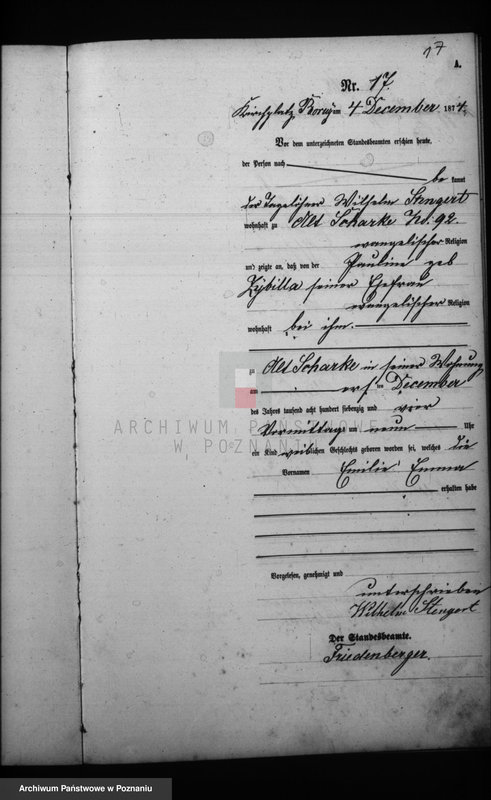 17
A.
Nr. 17.
Kirchplatz Boruy am 4 December 1874.
Vor dem unterzeichneten Standesbeamten erschien heute,
der Person nach
be kannt
der Tagelöhner Wilhelm Stengert
wohnhaft zu Alt Scharke No. 92
evangelischer Religion
und zeigte an, daß von der Pauline geb
Zybilla seiner Ehefrau
evangelischer Religion
wohnhaft bei ihm
zu Alt Scharke in seiner Wohnung
am ersten December
des Jahres tausend acht hundert siebenzig und vier
Vormittags um neun Uhr
ein Kind weiblichen Geschlechts geboren worden sei, welches die
Vornamen Emilie Emma
erhalten habe
Vorgelesen, genehmigt und
unterschrieben
Wilhelm Stengert
Der Standesbeamte.
Friedenberger.
ARCHIWUM PAŃSTWOWE
W POZNANIU
Archiwum Państwowe w Poznaniu